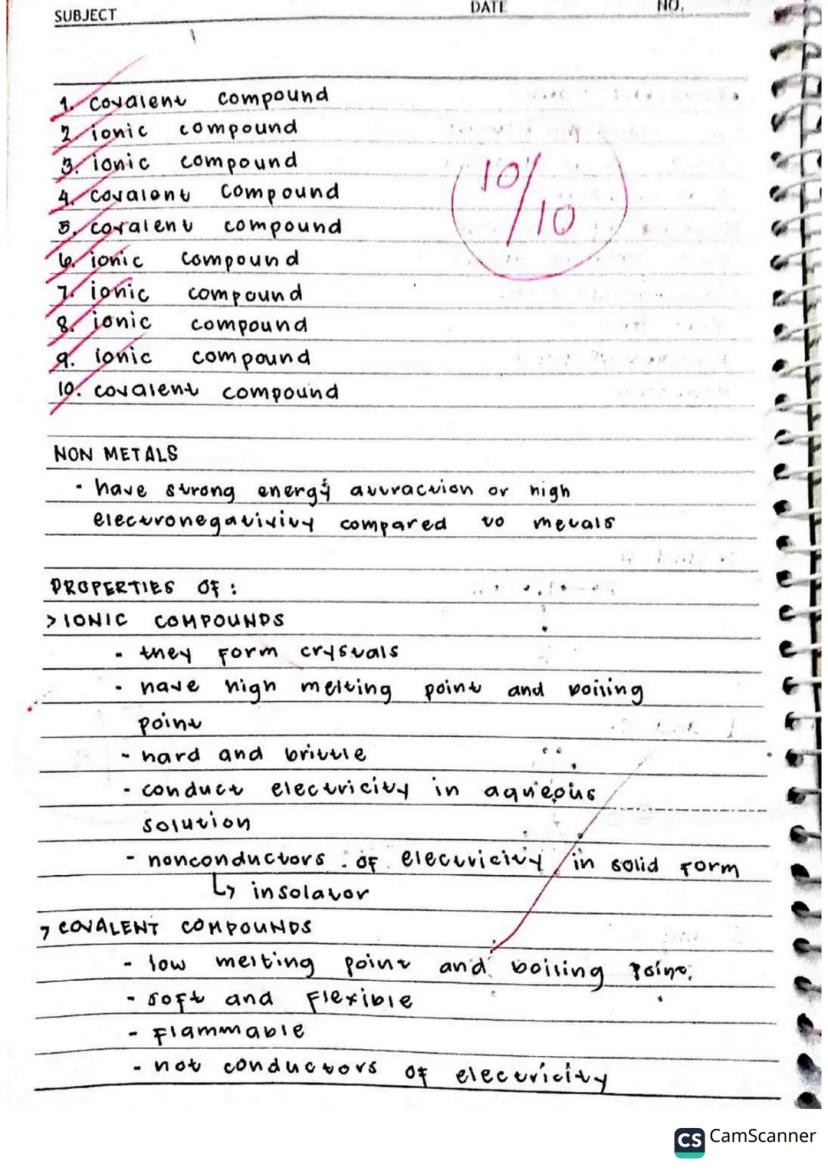 SUBJECT DATE NO.
1. covalent compound
2 ionic compound
3. ionic compound
4. covalent compound
5. covalent compound
6. ionic compound
7. ionic compound
8. ionic compound
9. ionic compound
10. covalent compound
10/10
NON METALS
- have strong energy attraction or high
electronegativity compared to metals
PROPERTIES OF :
> IONIC COMPOUNDS
- they form crystals
- have high melting point and boiling
point
- hard and brittle
- conduct electricity in aqueous
solution
- nonconductors of electricity in solid form
↳ insolator
> COVALENT COMPOUNDS
- low melting point and boiling point.
- soft and flexible
- flammable
- not conductors of electricity
CS CamScanner